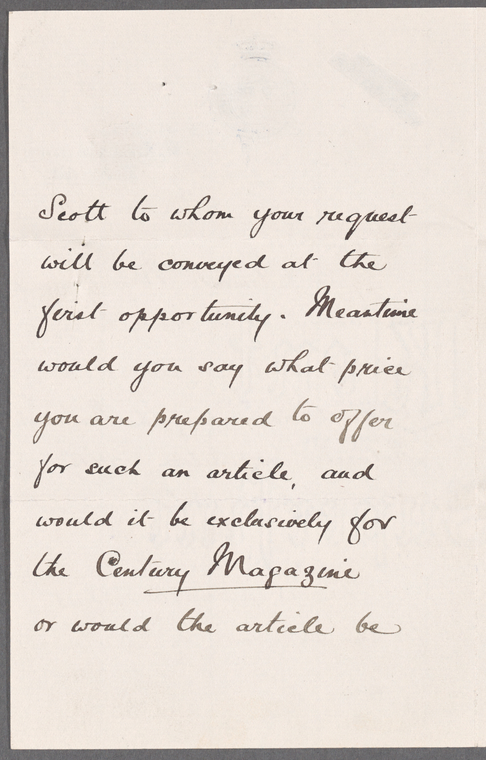 Scott to whom your request
will be conveyed at the
first opportunity. Meantime
would you say what price
you are prepared to offer
for such an article, and
would it be exclusively for
the Century Magazine
or would the article be